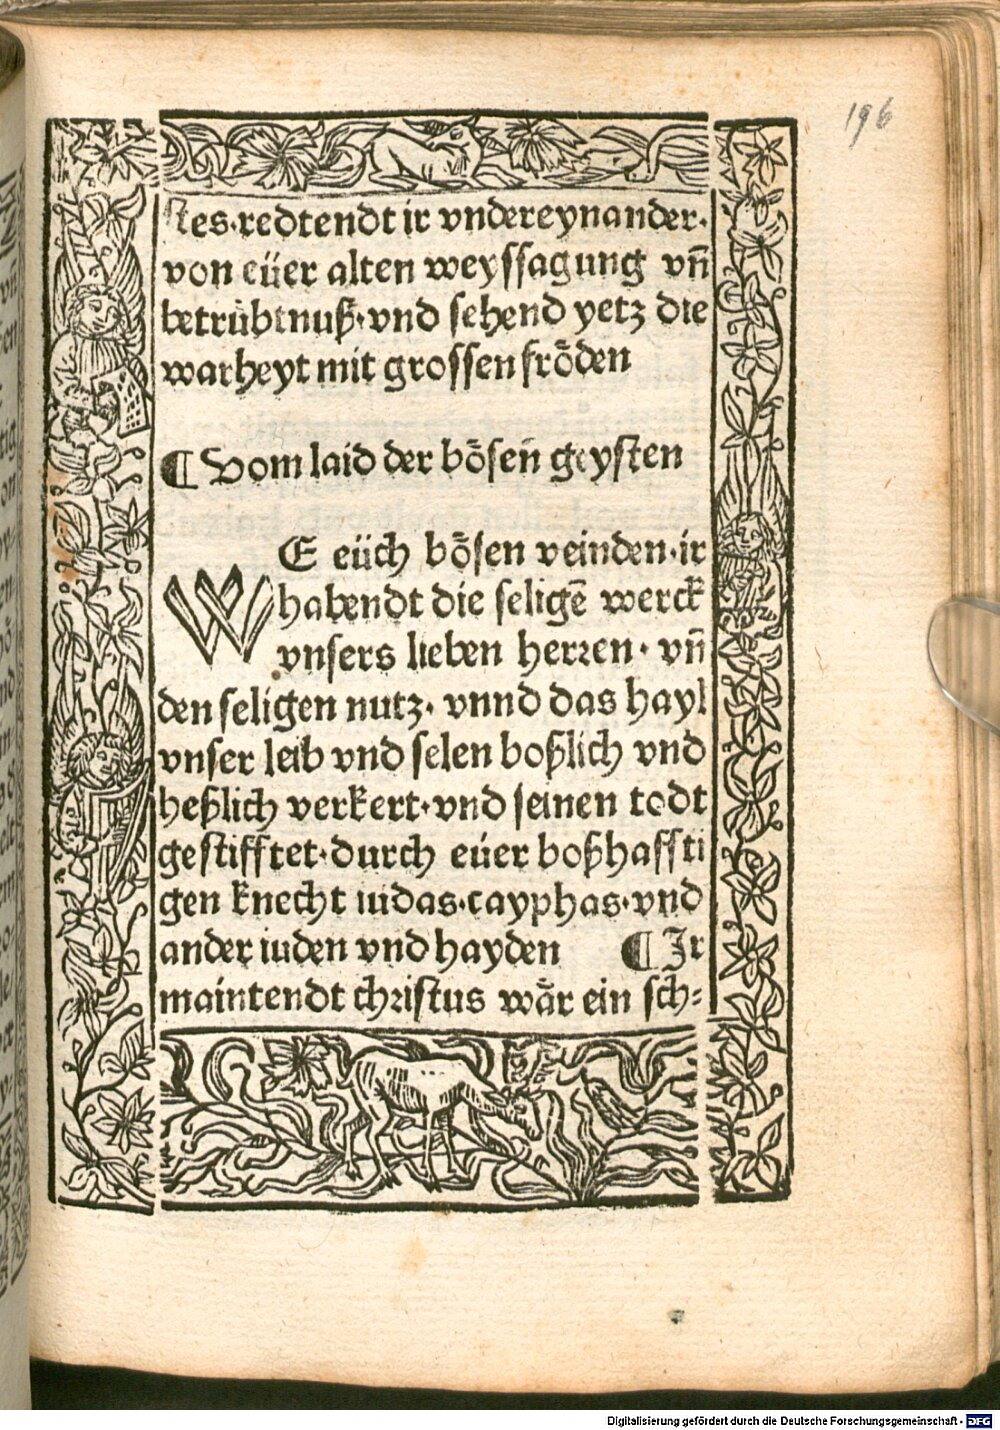 196
stes·redtendt ir vndereynander·
von eüer alten weyssagung vn̄
betrübtnuß·vnd sehend yetz die
warheyt mit grossen frőden
¶ Vom laid der bősen̄ geysten
WE eüch bősen veinden·ir
habendt die seligē werck
vnsers lieben herꝛen· vn̄
den seligen nutz· vnnd das hayl
vnser leib vnd selen boßlich vnd
heßlich verkert·vnd seinen todt
gestifftet·durch eüer boßhaffti
gen knecht iudas·cayphas·vnd
ander iuden vnd hayden ¶ Ir
maintendt chꝛistus wår ein sch⸗
Digitalisierung gefördert durch die Deutsche Forschungsgemeinschaft - DFG